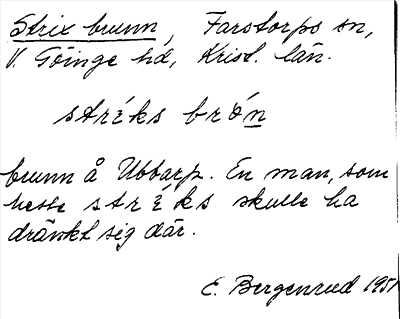 Strix brunn, Farstorps sn,
V. Göinge hd, Krist. län.
stréks brón
brunn å Ubbarp. En man, som
hette stréks skulle ha
dränkt sig där.
E. Bergenrud 1951